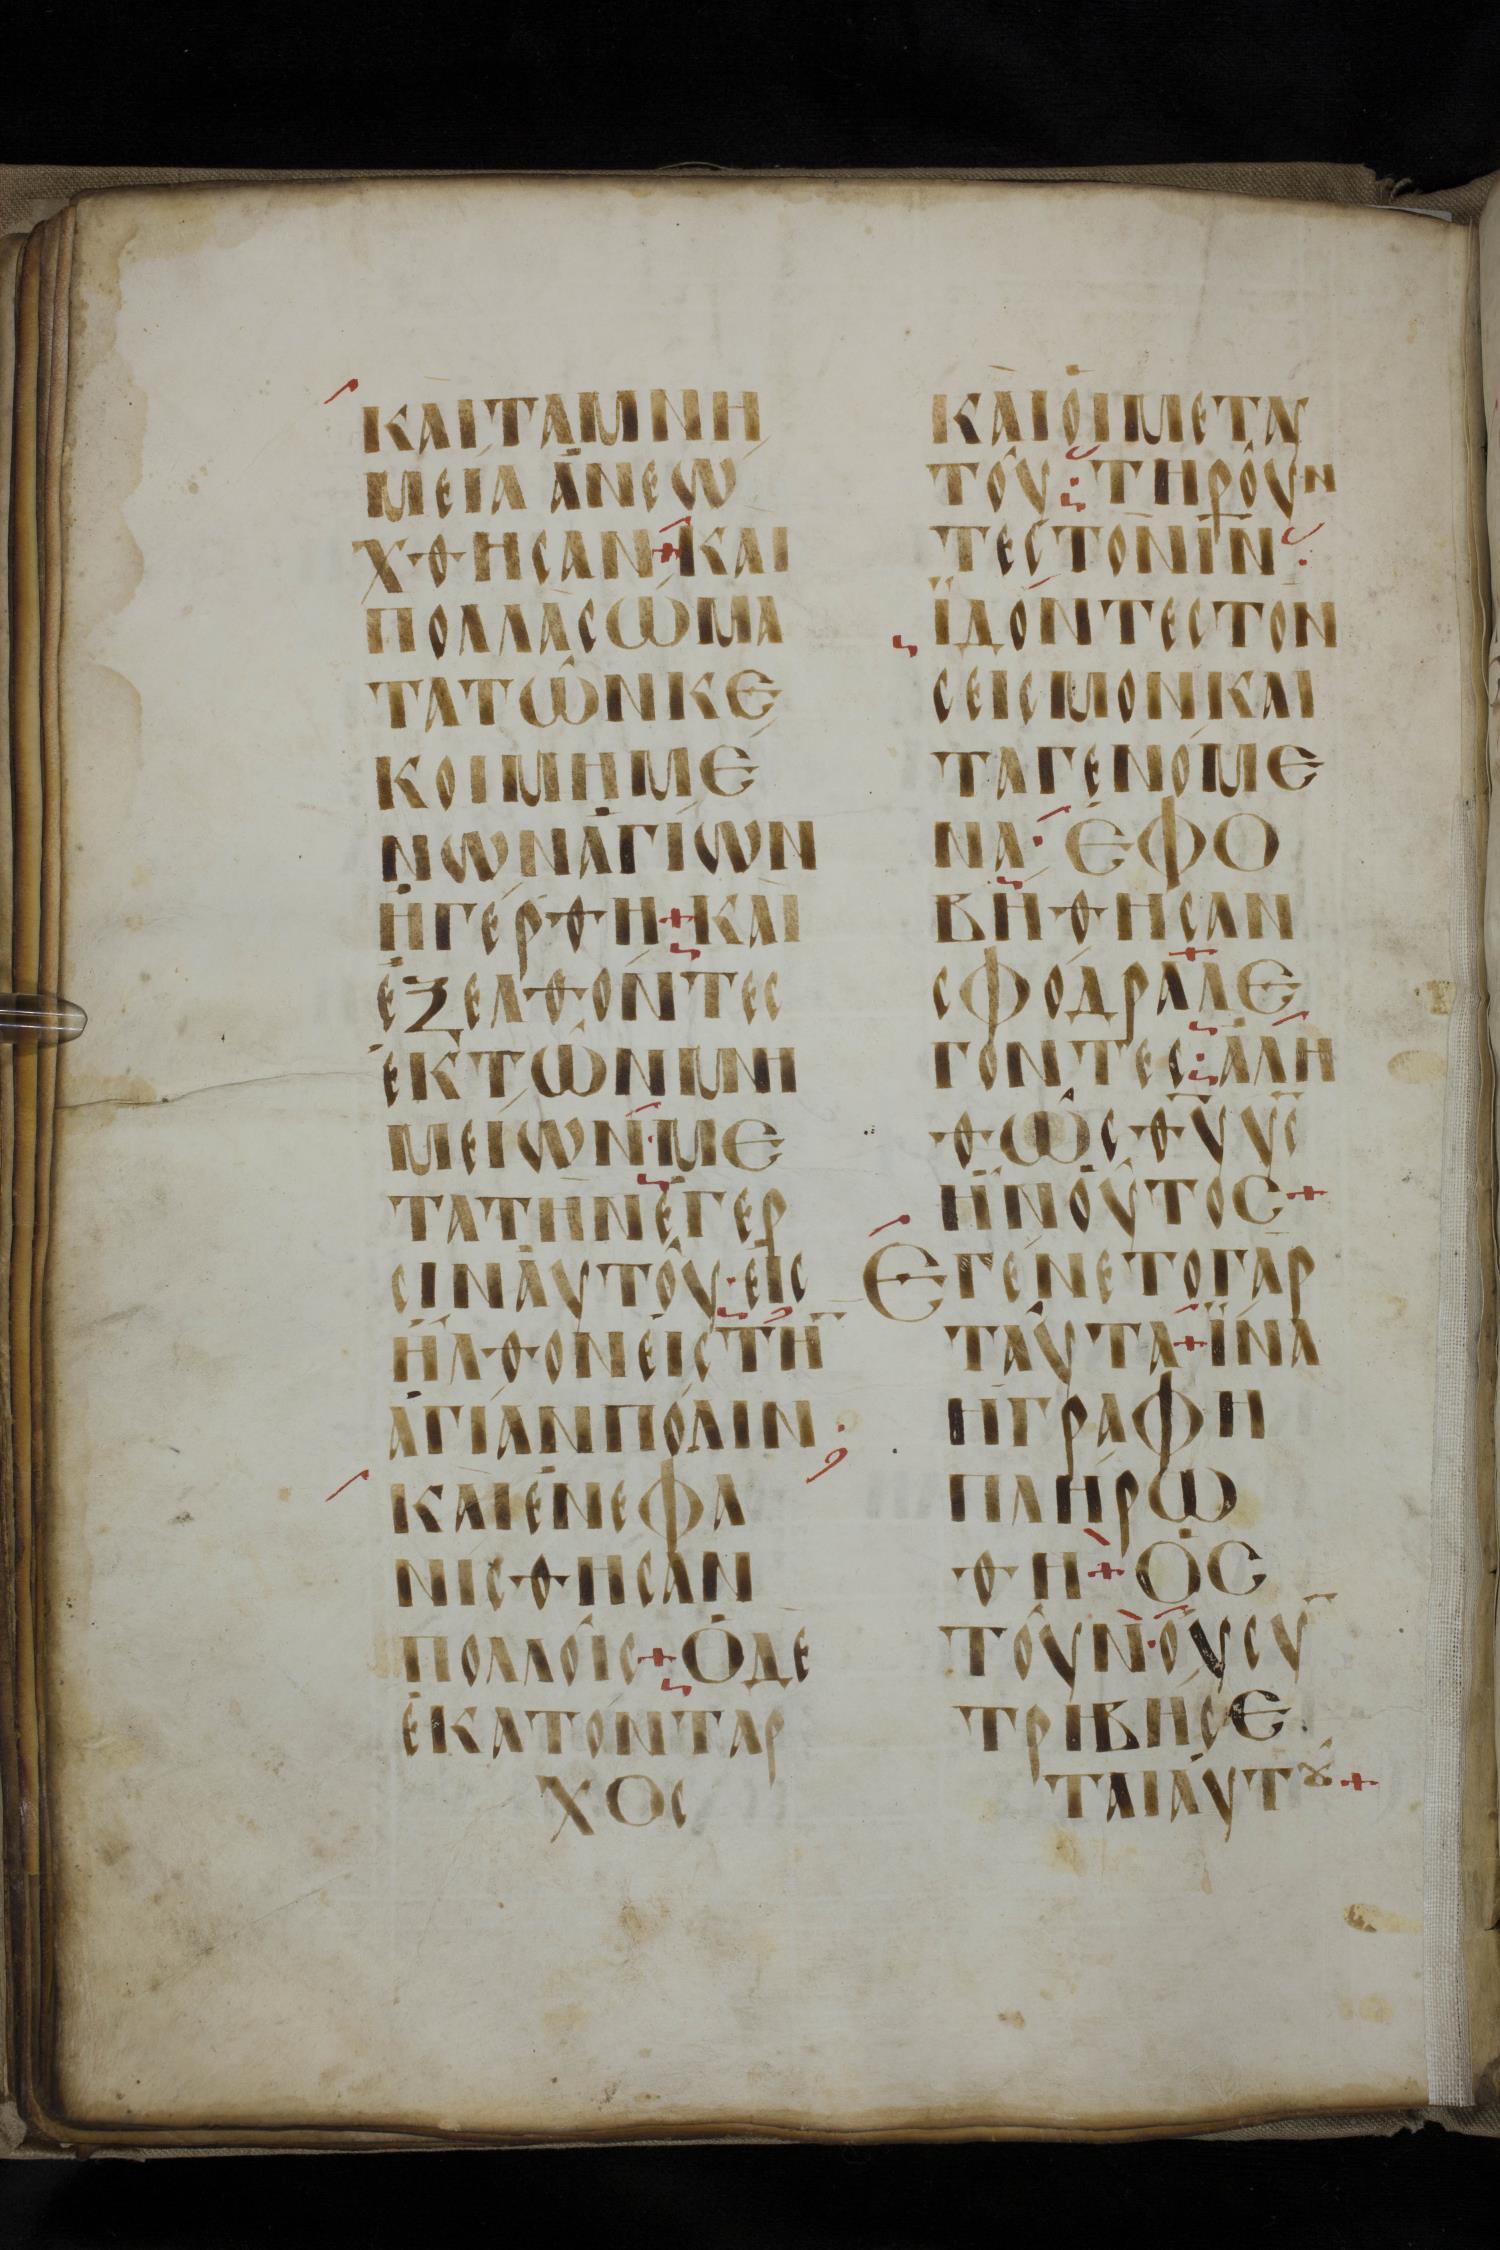 ΚΑΙΤΑΜΝΗ
ΜΕΙΑ ἈΝΕΩ
ΧΘΗϹΑΝ+ΚΑΙ
ΠΟΛΛᾺϹΏΜΑ
ΤΑΤῶΝΚΕ
ΚΟΙΜΗΜΈ
ΝΩΝἉΓΊΩΝ
ἨΓΈΡΘΗ+ΚΑῚ
ἘΞΕΛΘΌΝΤΕϹ
ἘΚΤῶΝΜΝΗ
ΜΕΊΩΝ·ΜΕ
ΤΑΤῊΝἜΓΕΡ
ϹΙΝἈΥΤΟῦ·ΕἸϹ
ἮΛΘΟΝΕἸϹΤῊ̄
ἉΓΊΑΝΠΌΛΙΝ·
ΚΑῚἘΝΕΦΑ
ΝΊϹΘΗϹΑΝ
ΠΟΛΛΟῖϹ+ὉΔΕ
ἙΚΑΤΌΝΤΑΡ
ΧΟϹ
ΚΑῚΟἹΜΕΤΑΥ
ΤΟῦ:ΤΗΡΟῦΝ
ΤΕϹΤῸΝΙ̅Ν̅:
ΪΔΌΝΤΕϹΤῸΝ
ϹΕΙϹΜΟΝΚΑΙ
ΤΑΓΕΝΌΜΕ
ΝΑ·ἘΦΟ
ΒΉΘΗϹΑΝ
ϹΦΌΔΡΑ+ΛΈ
ΓΟΝΤΕϹ:ἈΛΗ
ΘῶϹΘ̅Υ̅Υ̅Ϲ̅
ἮΝΟὟΤΟϹ+
ἘΓΈΝΕΤΟΓᾺΡ
ΤΑῦΤΑ+ΪΝΑ
ΗΓΡΑΦΗ
ΠΛΗΡΩ
ΘΗ+ὈϹ
ΤΟῦΝ·ΟΥϹΥ̅
ΤΡΙΒΉϹΕ
ΤΑΙἈΥΤȣ͂+